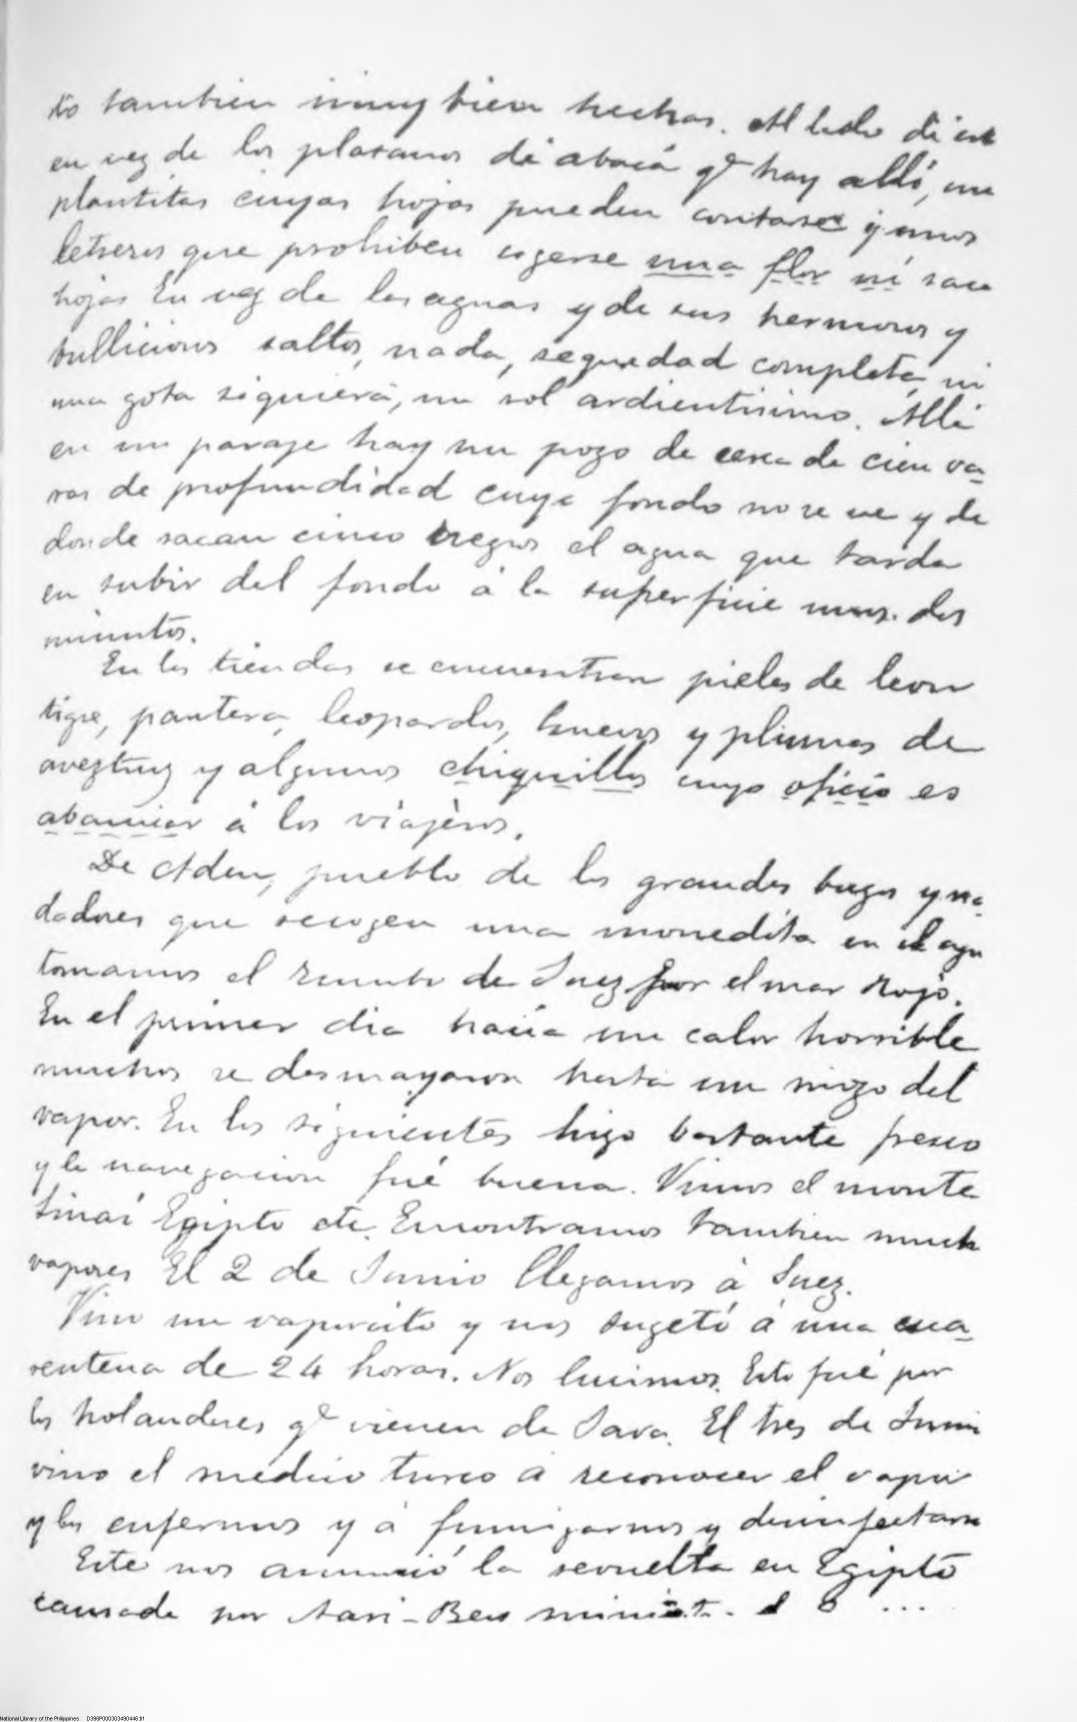 to tambien muy bien hechas. Al lado de est
en vez de los platanos de abacá qᵉ hay allí, un
plantitas cuyas hojas pueden contarse y unos
letreros que prohiben cogerse una flor ni saca
hojas En vez de las aguas y de sus hermosos y
bulliciosos saltos, nada, sequedad completa, ni
una gota siquiera, un sol ardientisimo. Allí
en un paraje hay un pozo de cerca de cien va-
ras de profundidad cuyo fondo no se ve y de
donde sacan cinco negros el agua que tarda
en subir del fondo á la superficie unos dos
minutos.
En las tiendas se encuentran pieles de leon
tigre, pantera, leopardos, huevos y plumas de
aveztruz y algunos chiquillos cuyo oficio es
abanicar á los viajeros.
De Aden, pueblo de los grandes buzos y na-
dadores que recogen una monedita en el agu
tomamos el rumbo de Suez por el mar Rojo.
En el primer dia hacía un calor horrible
muchos se desmayaron hasta un mozo del
vapor. En los siguientes hizo bastante fresco
y la navegacion fué buena. Vimos el monte
Sinaí Egipto etc. Encontramos tambien much
vapores El 2 de Junio llegamos á Suez.
Vino un vaporcito y nos sugetó á una cua-
rentena de 24 horas. Nos lucimos. Esto fué por
los holandeses qᵉ vienen de Java. El tres de Juni
vino el médico turco á reconocer el vapor
y los enfermos y á fumigarnos y desinfectarn
Este nos anunció la revuelta en Egipto
causada por -Bey